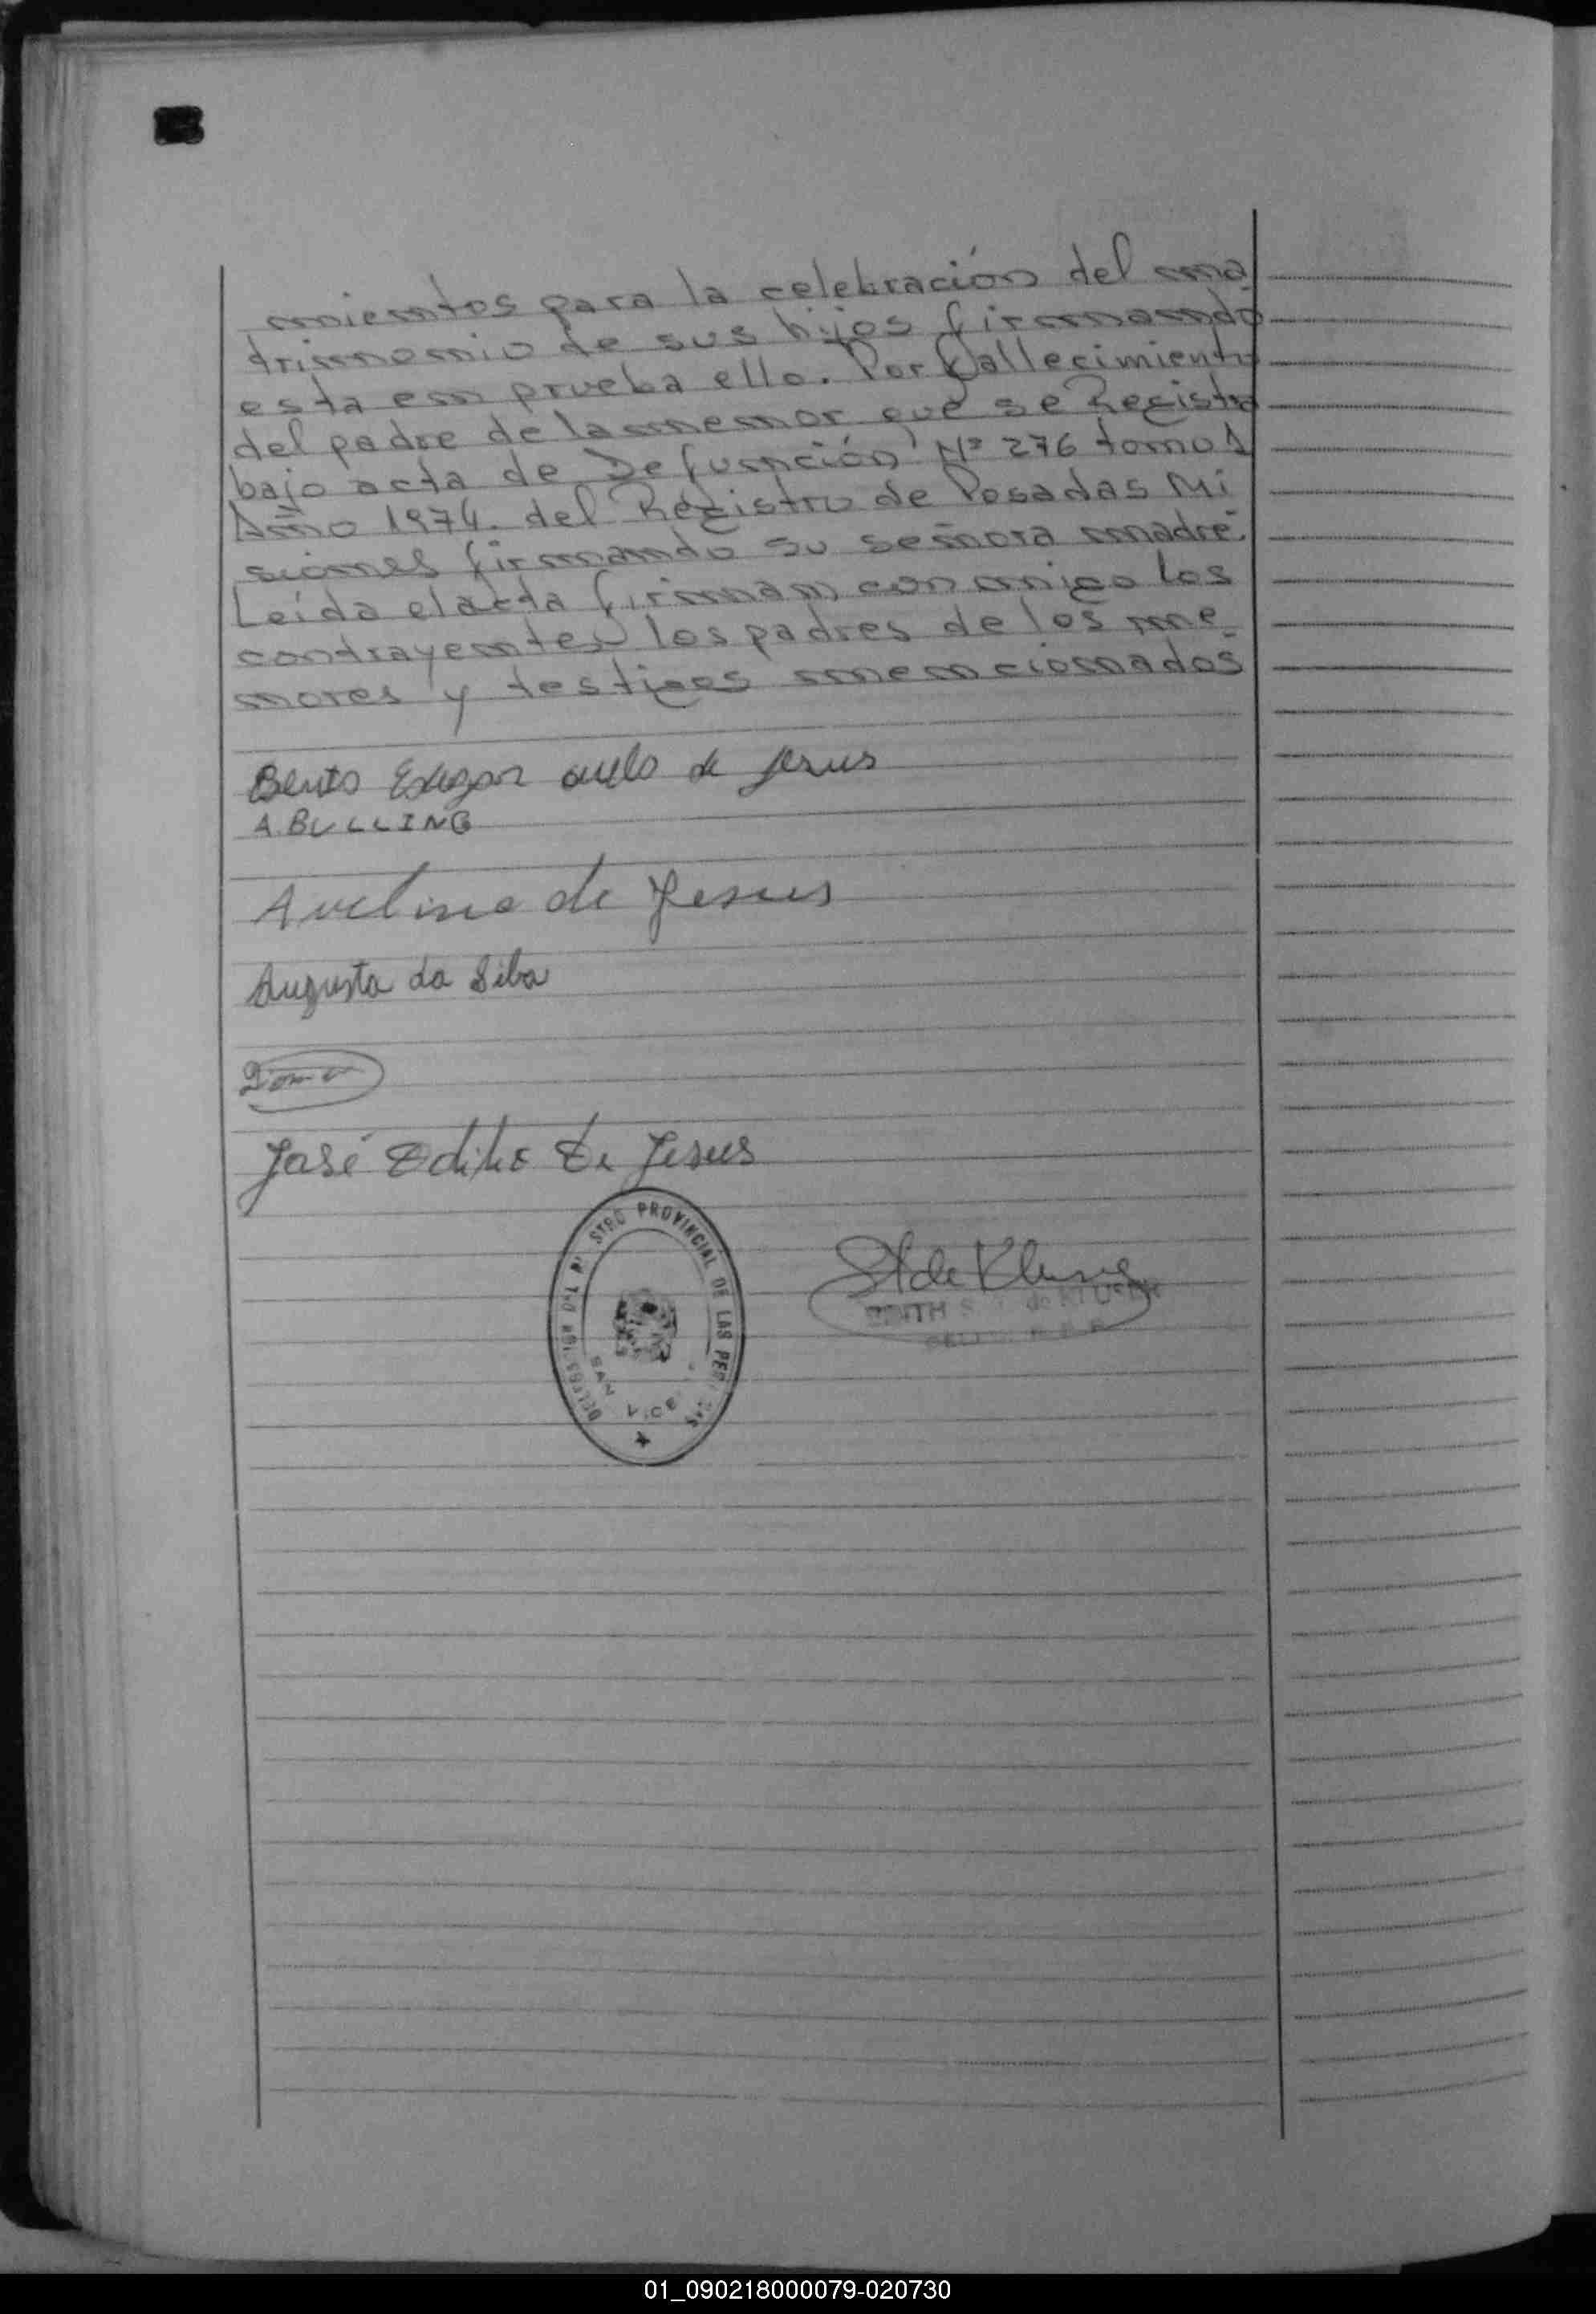 mientos para la celebración del ma
trimonio de sus hijos firmando
esta em prueba ello. Por fallecimiento
del padre de la menor que se Registra
bajo acta de Defunción Nº 276 tomo 1
Año 1974. del Registro de Posadas Mi
siones firmando su señora madre.
Leída el acta firman conmigo los
contrayentes los padres de los me
nores y testigos mencionados
Bento de Jesus
A. BULLING
Avelino de Jesus
Augusta da Silva
José de Jesus
STRO PROVINCIAL DE LAS PER
SAN VICE
de
01_090218000079-020730